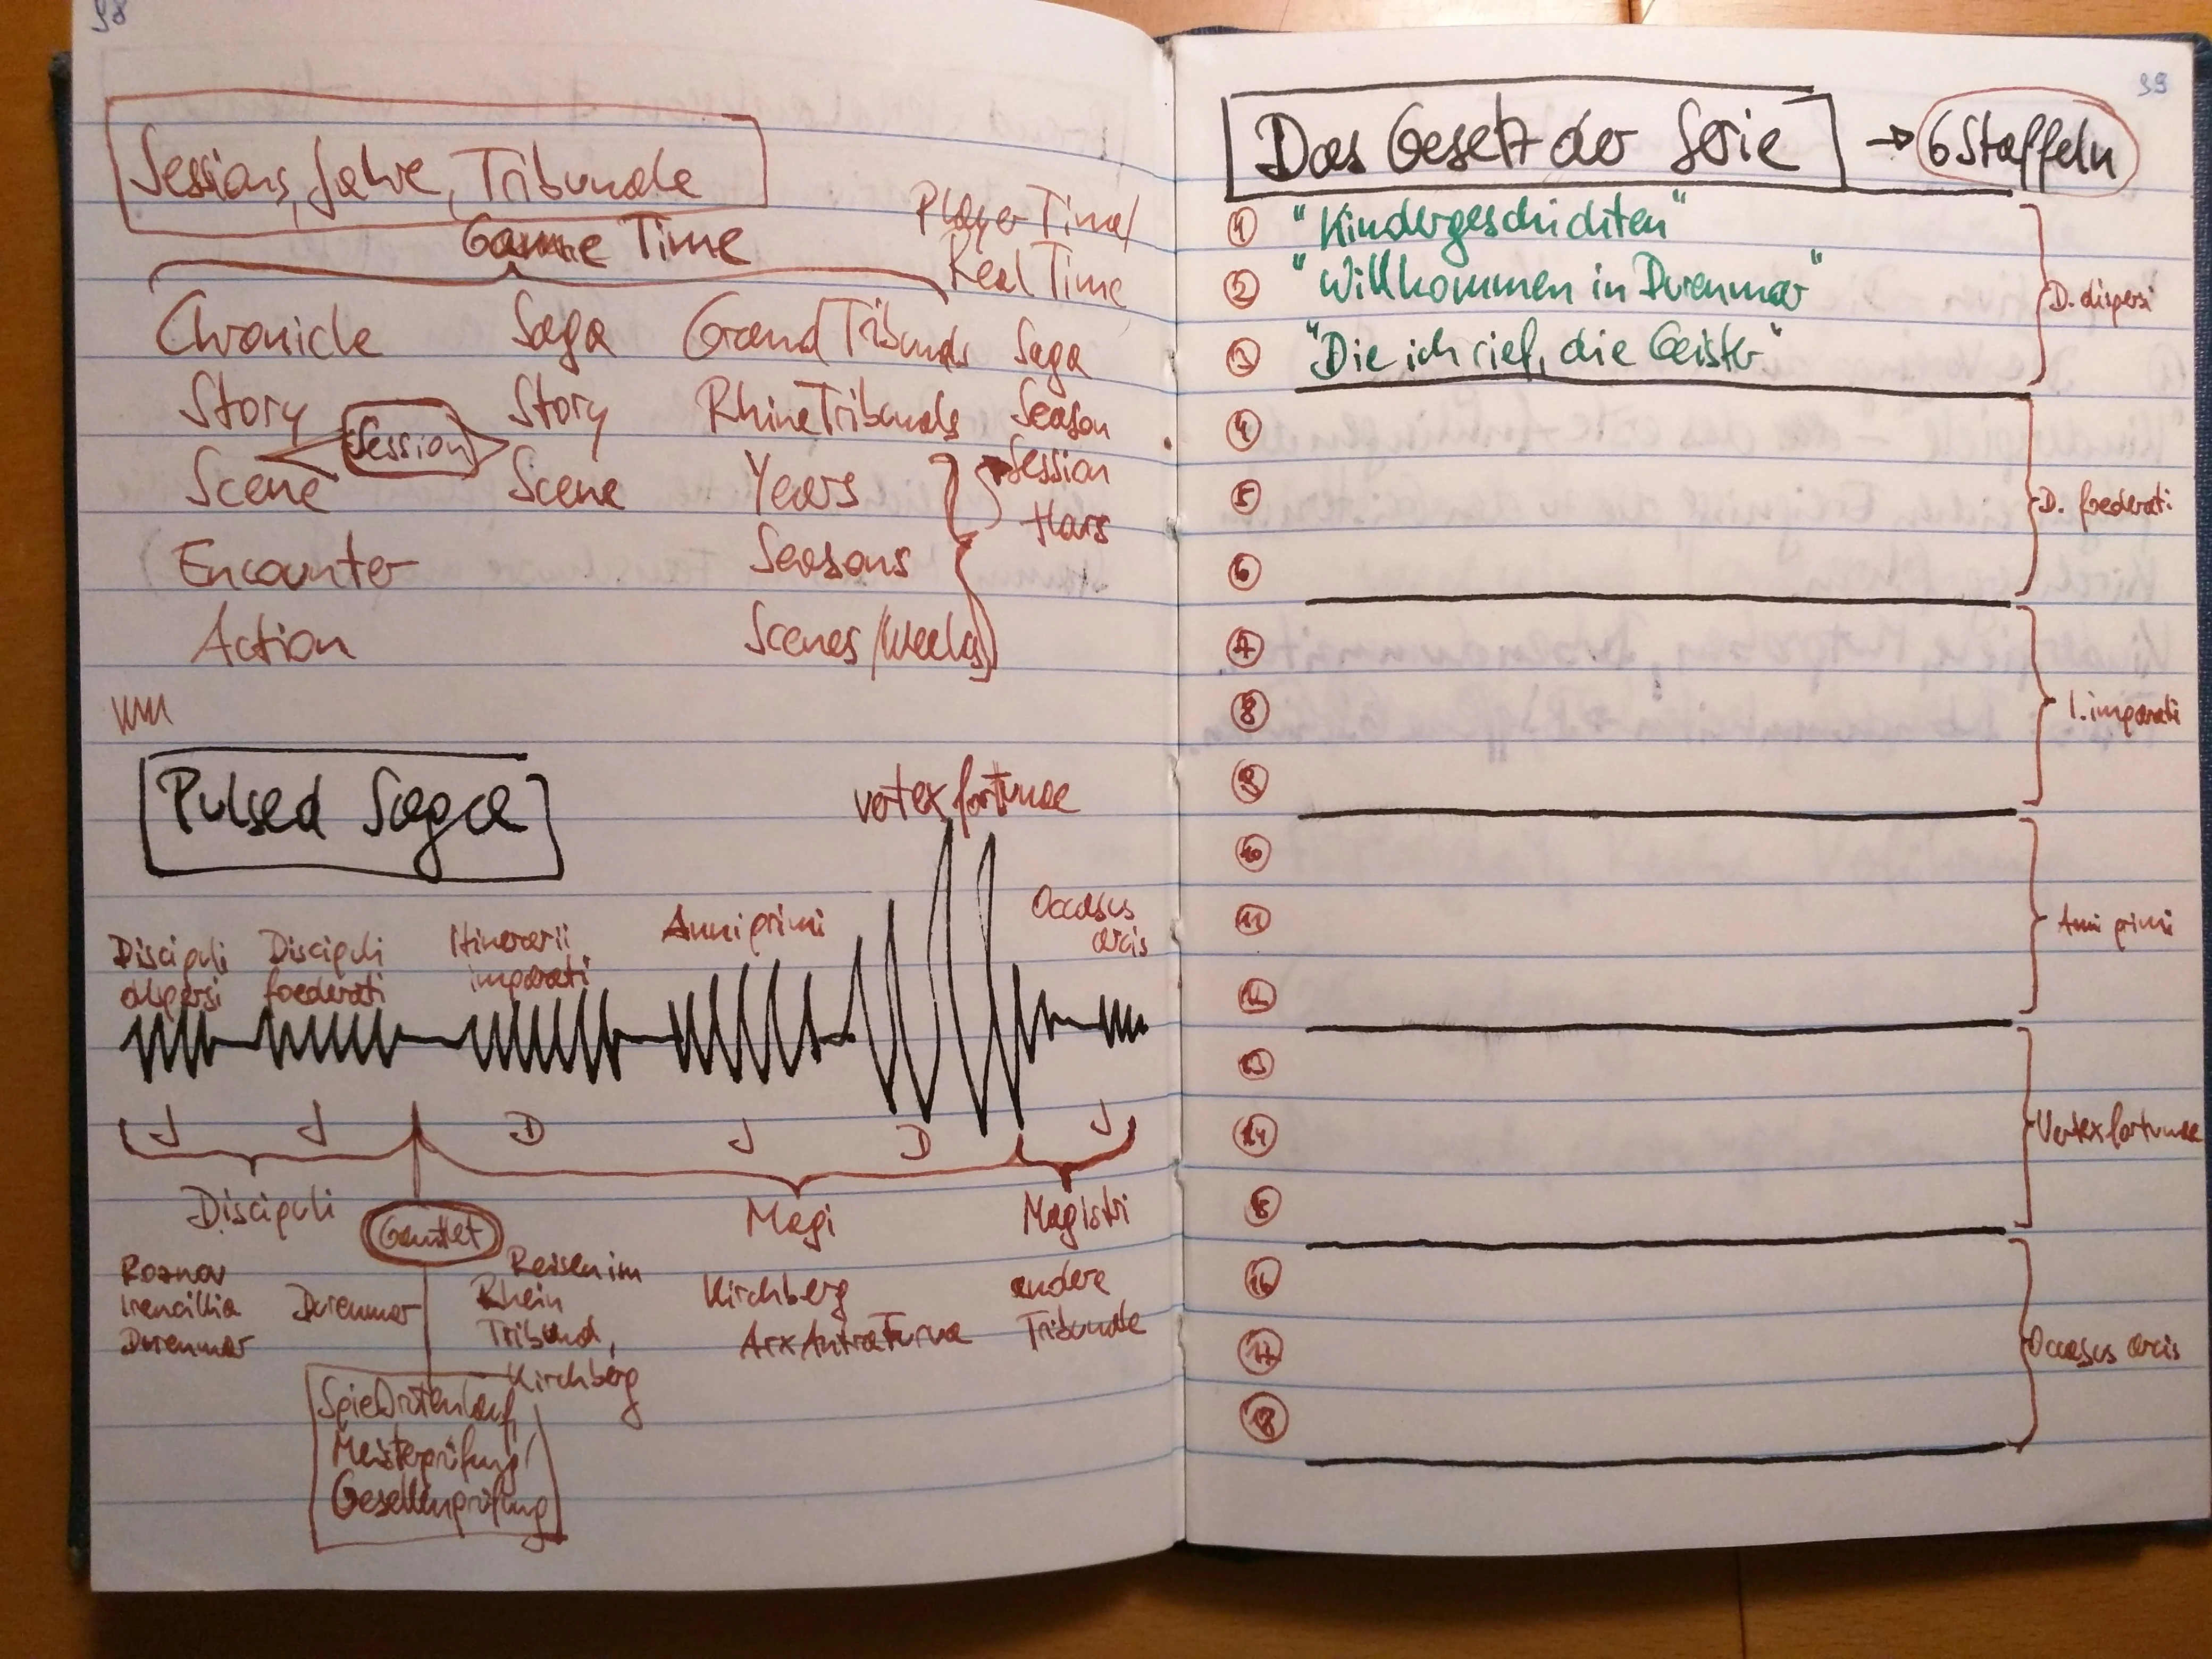 98
Sessions, Jahre, Tribunale
Game Time
Player Time/
Real Time
Chronicle Saga Grand Tribunals Saga
Story Story Rhine Tribunals Season
Session
Scene Scene Years Session
Hars
Encounter Seasons
Action Scenes/Weeks
Pulsed Saga
vertex fortunae
Discipuli
dispersi
Discipuli
foederati
Itinerarii
imparati
Anni primi
Occasus
arcis
J J D J D J
Discipuli Gauntlet Magi Magistri
Roznov
Irencillia
Durenmar
Durenmar
Reisen im
Rhein
Tribunal,
Kirchberg
Kirchberg
Arx Antra Furva
andere
Tribunale
Spielortenlauf,
Meisterprüfung/
Gesellenprüfung
99
Das Gesetz der Serie → 6 Staffeln
1 "Kindergeschichten"
2 "Willkommen in Durenmar"
3 "Die ich rief, die Geister"
D. dispersi
4
5
6
D. foederati
7
8
9
I. imparati
10
11
12
Anni primi
13
14
15
Vertex fortunae
16
17
18
Occasus arcis